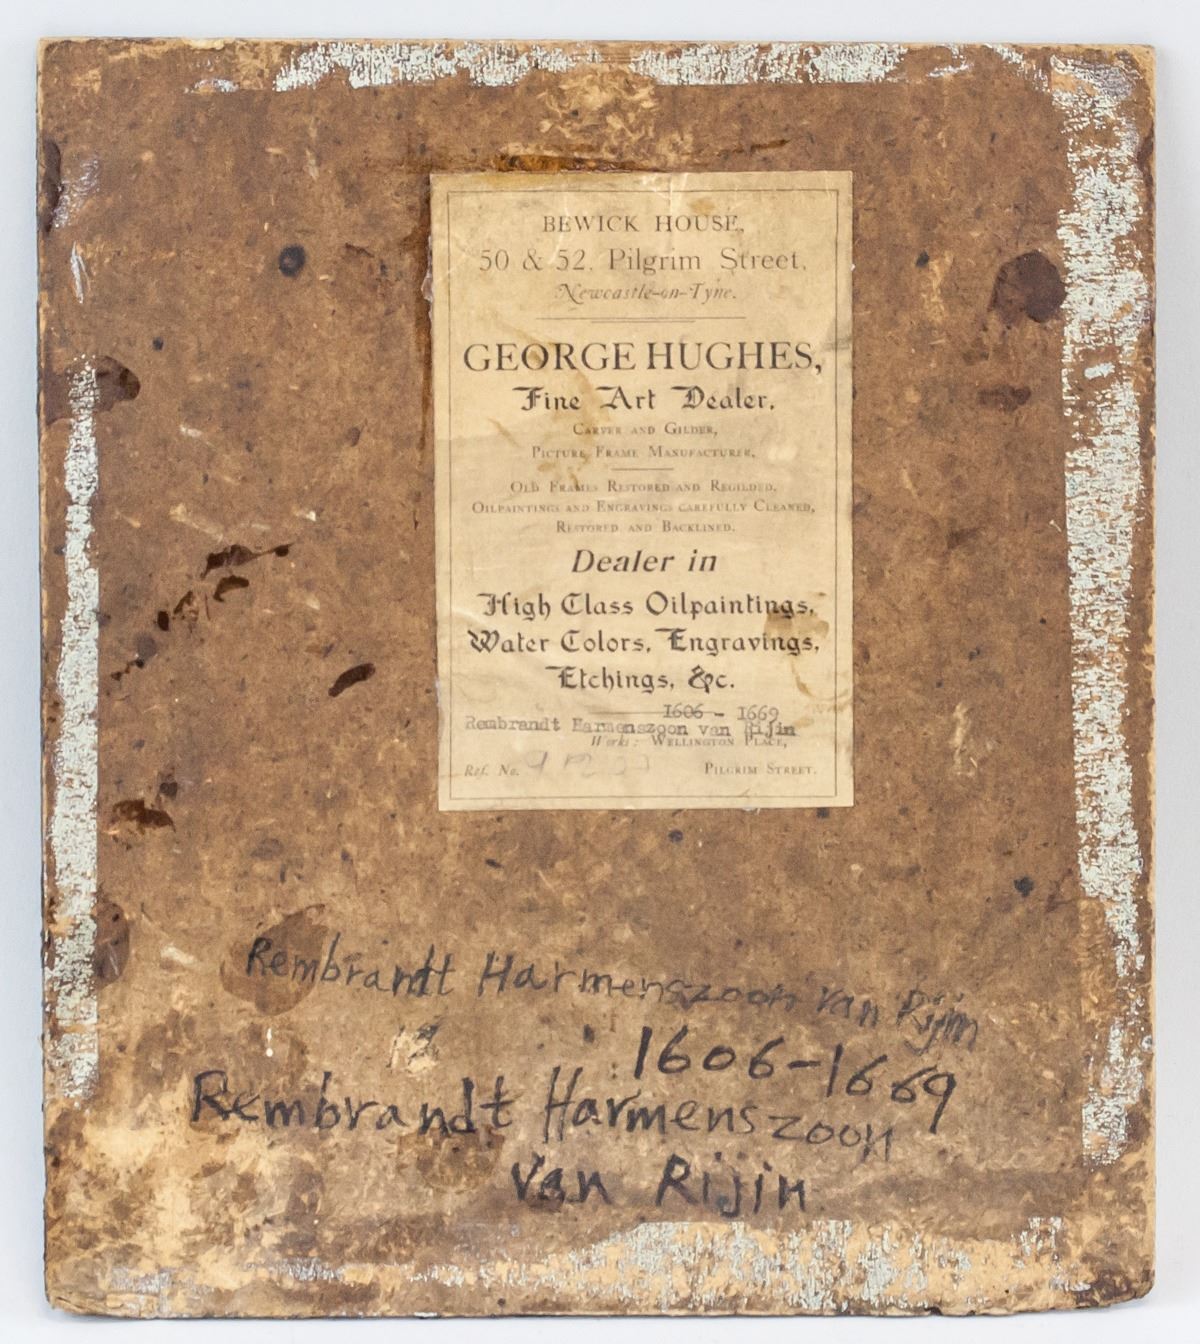 BEWICK HOUSE,
50 & 52, Pilgrim Street,
Newcastle-on-Tyne.
GEORGE HUGHES,
Fine Art Dealer,
CARVER AND GILDER,
PICTURE FRAME MANUFACTURER,
OLD FRAMES RESTORED AND REGILDED.
OILPAINTINGS AND ENGRAVINGS CAREFULLY CLEANED,
RESTORED AND BACKLINED.
Dealer in
High Class Oilpaintings,
Water Colors, Engravings,
Etchings, &c.
1606 - 1669
Rembrandt Harmenszoon van Rijin
Works: WELLINGTON PLACE,
Ref. No. PILGRIM STREET.
Rembrandt Harmenszoon van Rijin
1606-1669
Rembrandt Harmenszoon
van Rijin